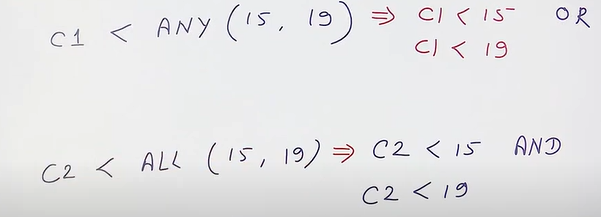 C1 < ANY (15, 19) ⇒ C1 < 15 OR
C1 < 19
C2 < ALL (15, 19) ⇒ C2 < 15 AND
C2 < 19